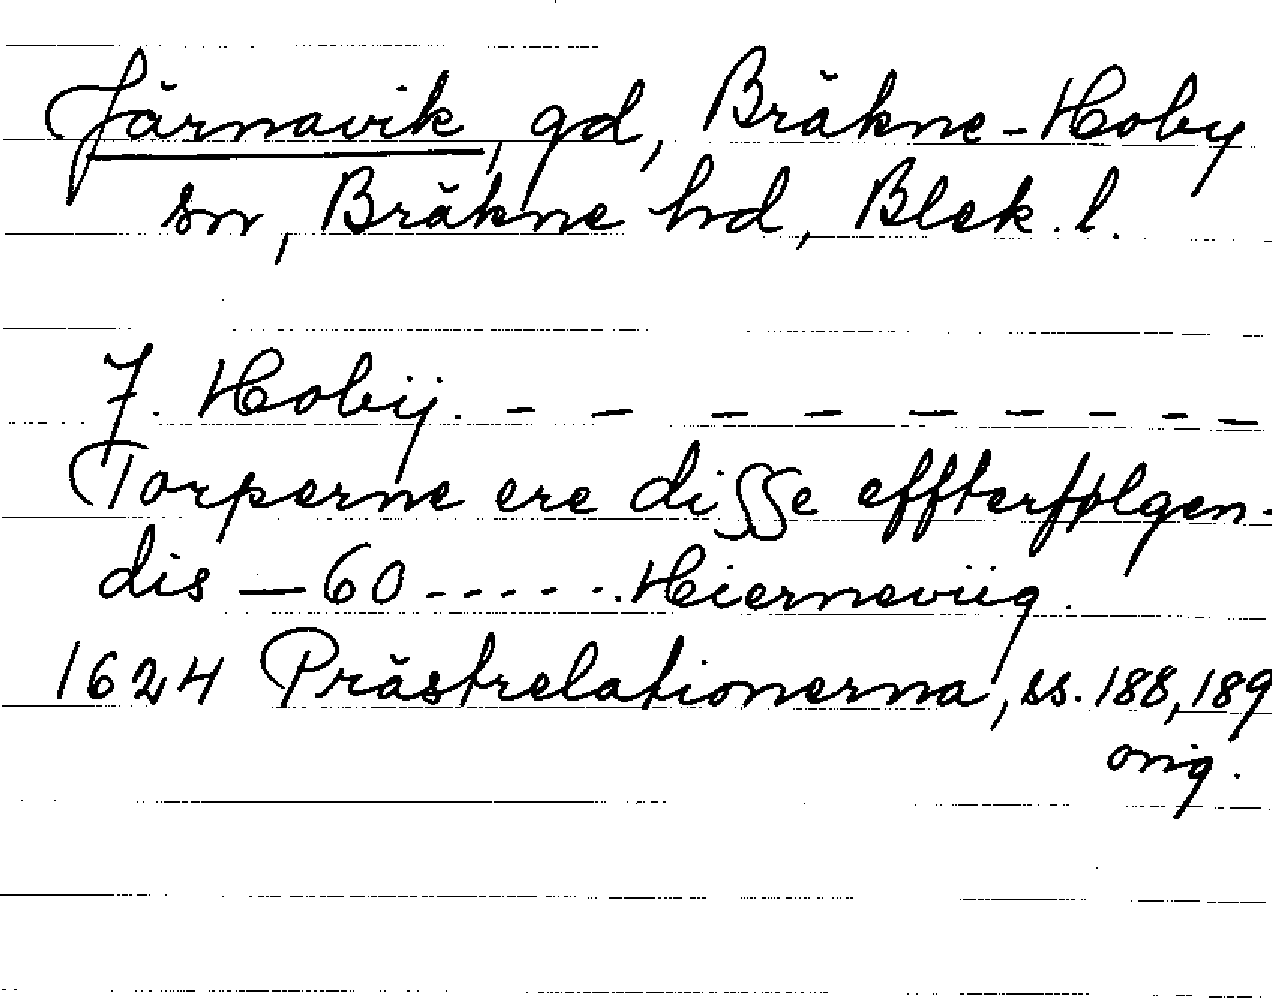 Järnavik, gd, Bräkne-Hoby
sn, Bräkne hd, Blek. l.
7. Hobÿ. – – – – – – – – –
Torperne ere disse effterfølgen-
dis – 60 - - - - - . . Hiernevüg.
1624 Prästrelationerna, ss. 188, 189
orig.